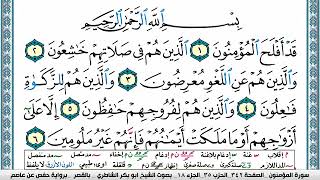 بِسْمِ اللَّهِ الرَّحْمَٰنِ الرَّحِيمِ
قَدْ أَفْلَحَ الْمُؤْمِنُونَ ١ الَّذِينَ هُمْ فِي صَلَاتِهِمْ خَاشِعُونَ ٢
وَالَّذِينَ هُمْ عَنِ اللَّغْوِ مُعْرِضُونَ ٣ وَالَّذِينَ هُمْ لِلزَّكَاةِ
فَاعِلُونَ ٤ وَالَّذِينَ هُمْ لِفُرُوجِهِمْ حَافِظُونَ ٥ إِلَّا عَلَىٰ
أَزْوَاجِهِمْ أَوْ مَا مَلَكَتْ أَيْمَانُهُمْ فَإِنَّهُمْ غَيْرُ مَلُومِينَ ٦
سورة المؤمنون - الصفحة ٣٤٢ - الجزء ١٨ بصوت الشيخ أبو بكر الشاطري - بالقصر - رواية حفص عن عاصم